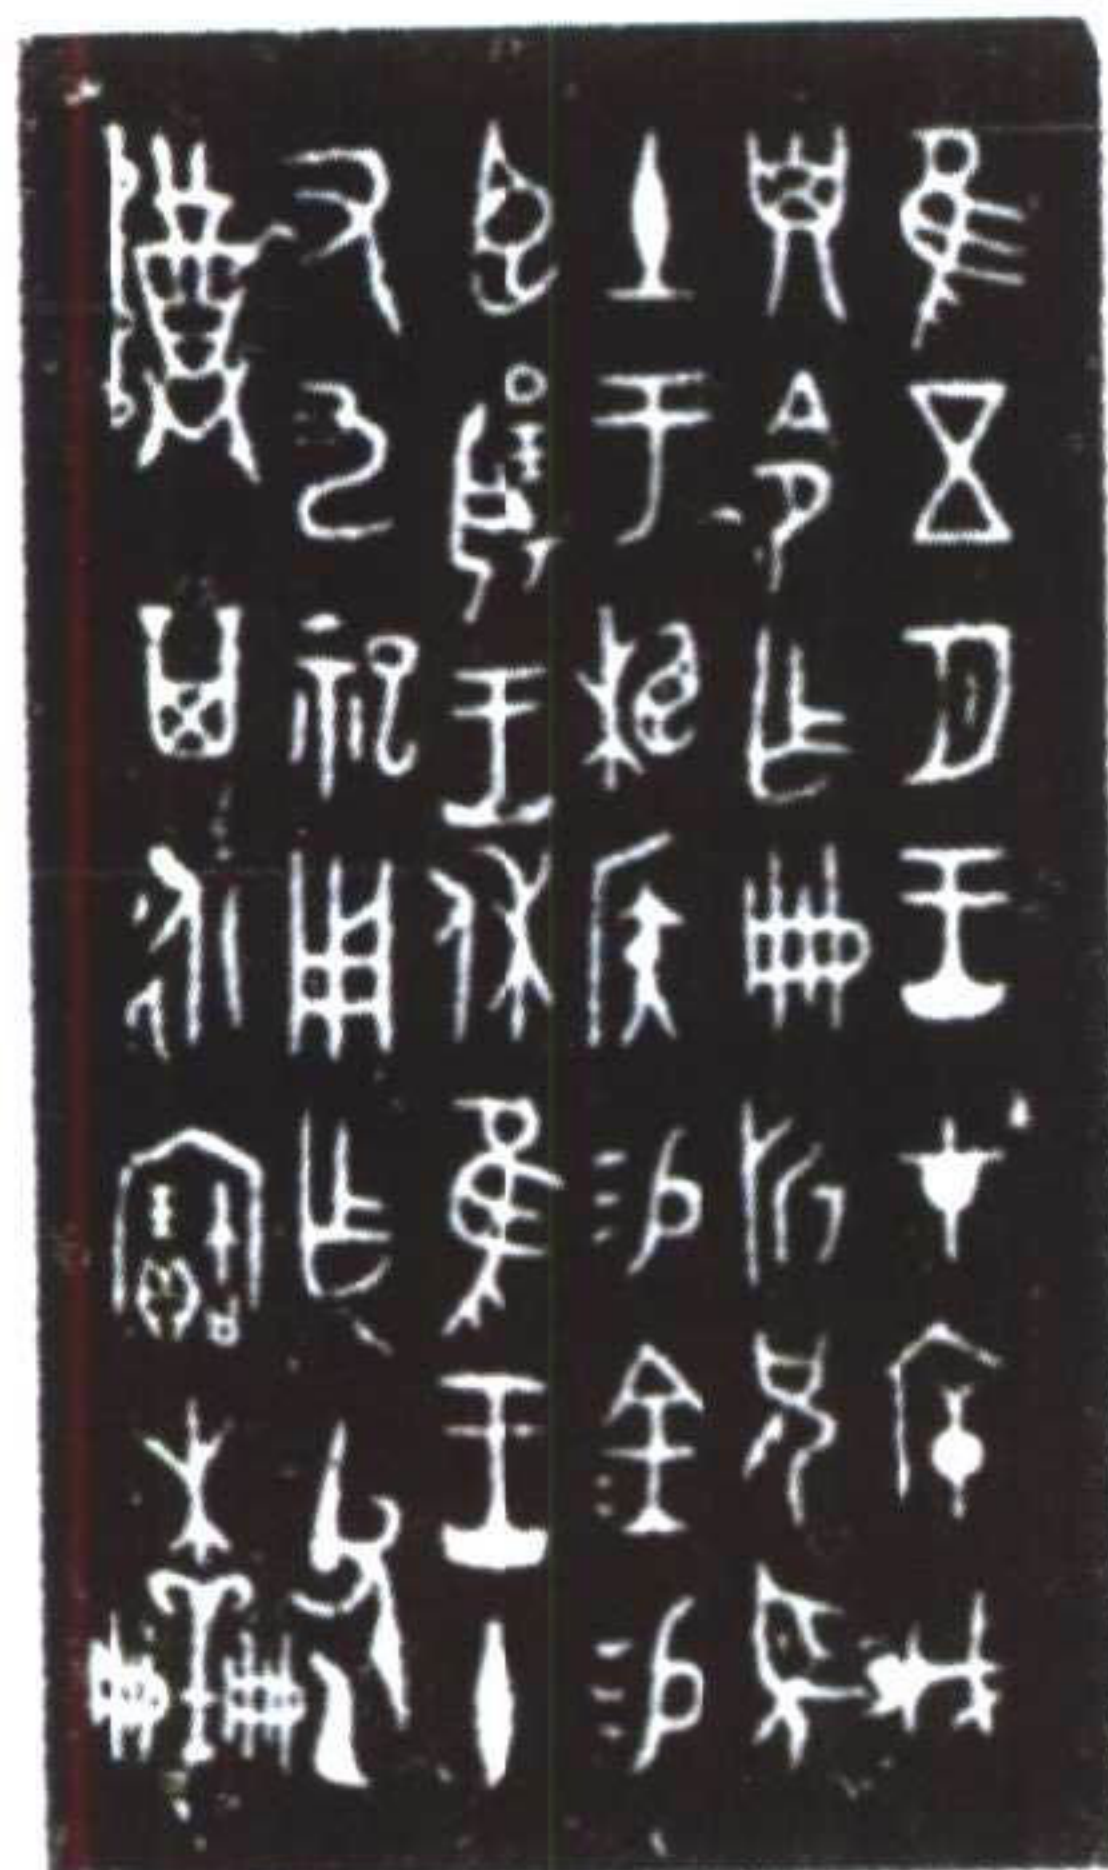 隹五月王才斥戊
子令乍册折兄望
土于相侯易金易
臣扬王休隹王十
又九祀用乍父乙
尊其永宝木羊册